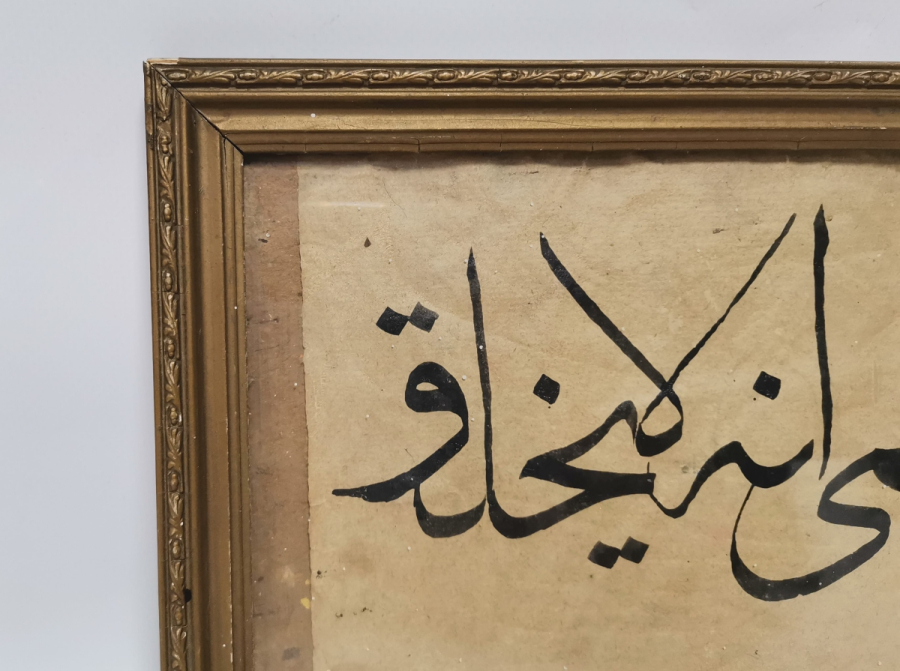 انه لا يخلق